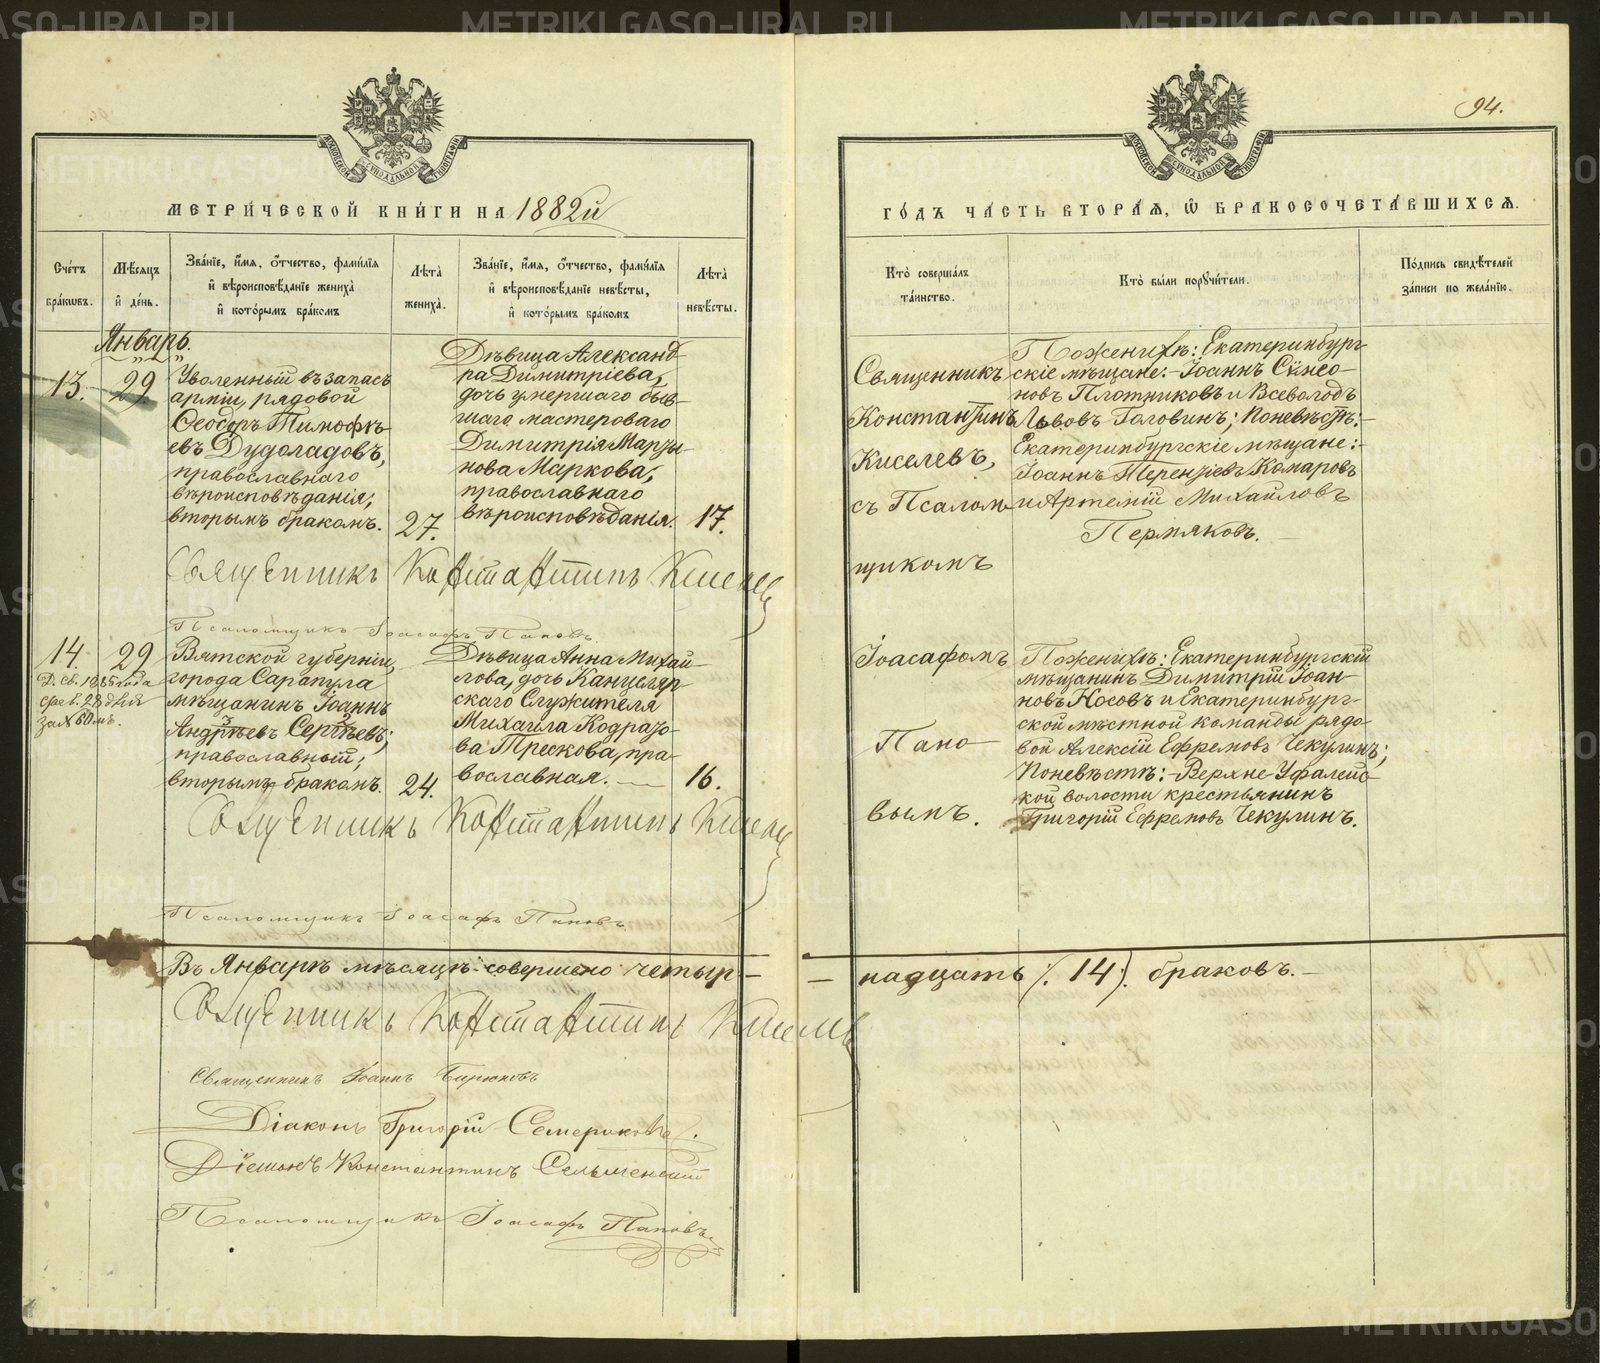 94.
МЕТРИ́ЧЕСКОЙ КНИ́ГИ НА 1882й
ГО́ДЪ ЧА́СТЬ ВТОРА́Я, Ѽ БРАКОСОЧЕТА́ВШИХСЯ.
Сче́тъ бра́ковъ.
Мѣ́сяцъ и҆ де́нь.
Зва́нїе, и҆́мя, ѻ҆́тчество, фами́лїя и҆ вѣроисповѣ́данїе жениха̀ и҆ кото́рымъ бра́комъ
Лѣ́та жениха̀.
Зва́нїе, и҆́мя, ѻ҆́тчество, фами́лїя и҆ вѣроисповѣ́данїе невѣ́сты, и҆ кото́рымъ бра́комъ
Лѣ́та невѣ́сты.
Кто̀ соверша́лъ та́инство.
Кто̀ бы́ли поручи́тели.
По́дпись свидѣ́телей за́писи по жела́нїю.
Январь.
13.
29
Уволенный въ запасъ
арміи, рядовой
Ѳеодоръ Тимоѳѣ-
евъ Дудоладовъ,
православнаго
вѣроисповѣданія;
вторымъ бракомъ.
27.
Дѣвица Александ-
ра Димитріева,
дочь умершаго быв-
шаго мастероваго
Димитрія Марты-
нова Маркова,
православнаго
вѣроисповѣданія.
17.
Священникъ
Константинъ
Киселевъ,
съ Псалом-
щикомъ
По женихѣ: Екатеринбург-
скіе мѣщане: Іоаннъ Сѵмео-
новъ Плотниковъ и Всеволодъ
Львовъ Головинъ; по невѣстѣ:
Екатеринбургскіе мѣщане:
Іоаннъ Терентіевъ Комаровъ
и Артемій Михайловъ
Пермяковъ.
Священникъ Константинъ Киселевъ
Псаломщикъ Іоасафъ Пановъ.
14.
29
за № 60мъ.
Вятской губерніи,
города Сарапула
мѣщанинъ Іоаннъ
Андреевъ Сергѣевъ;
православный;
вторымъ бракомъ.
24.
Дѣвица Анна Михай-
лова, дочь Канцеляр-
скаго Служителя
Михаила Кодрато-
ва Трескова, пра-
вославная.
16.
Іоасафомъ
Пано-
вымъ.
По женихѣ: Екатеринбургскій
мѣщанинъ Димитрій Іоан-
новъ Носовъ и Екатеринбург-
ской мѣстной команды рядо-
вой Алексій Ефремовъ Чекулинъ;
По невѣстѣ: Верхне-Уфалейс-
кой волости крестьянинъ
Григорій Ефремовъ Чекулинъ.
Священникъ Константинъ Киселевъ
Псаломщикъ Іоасафъ Пановъ.
Въ Январѣ мѣсяцѣ совершено четыр-
надцать (14) браковъ.
Священникъ Константинъ Киселевъ
Священникъ Іоаннъ Бирюковъ
Діаконъ Григорій Семериковъ.
Псаломщикъ Іоасафъ Пановъ
METRIKI.GASO-URAL.RU